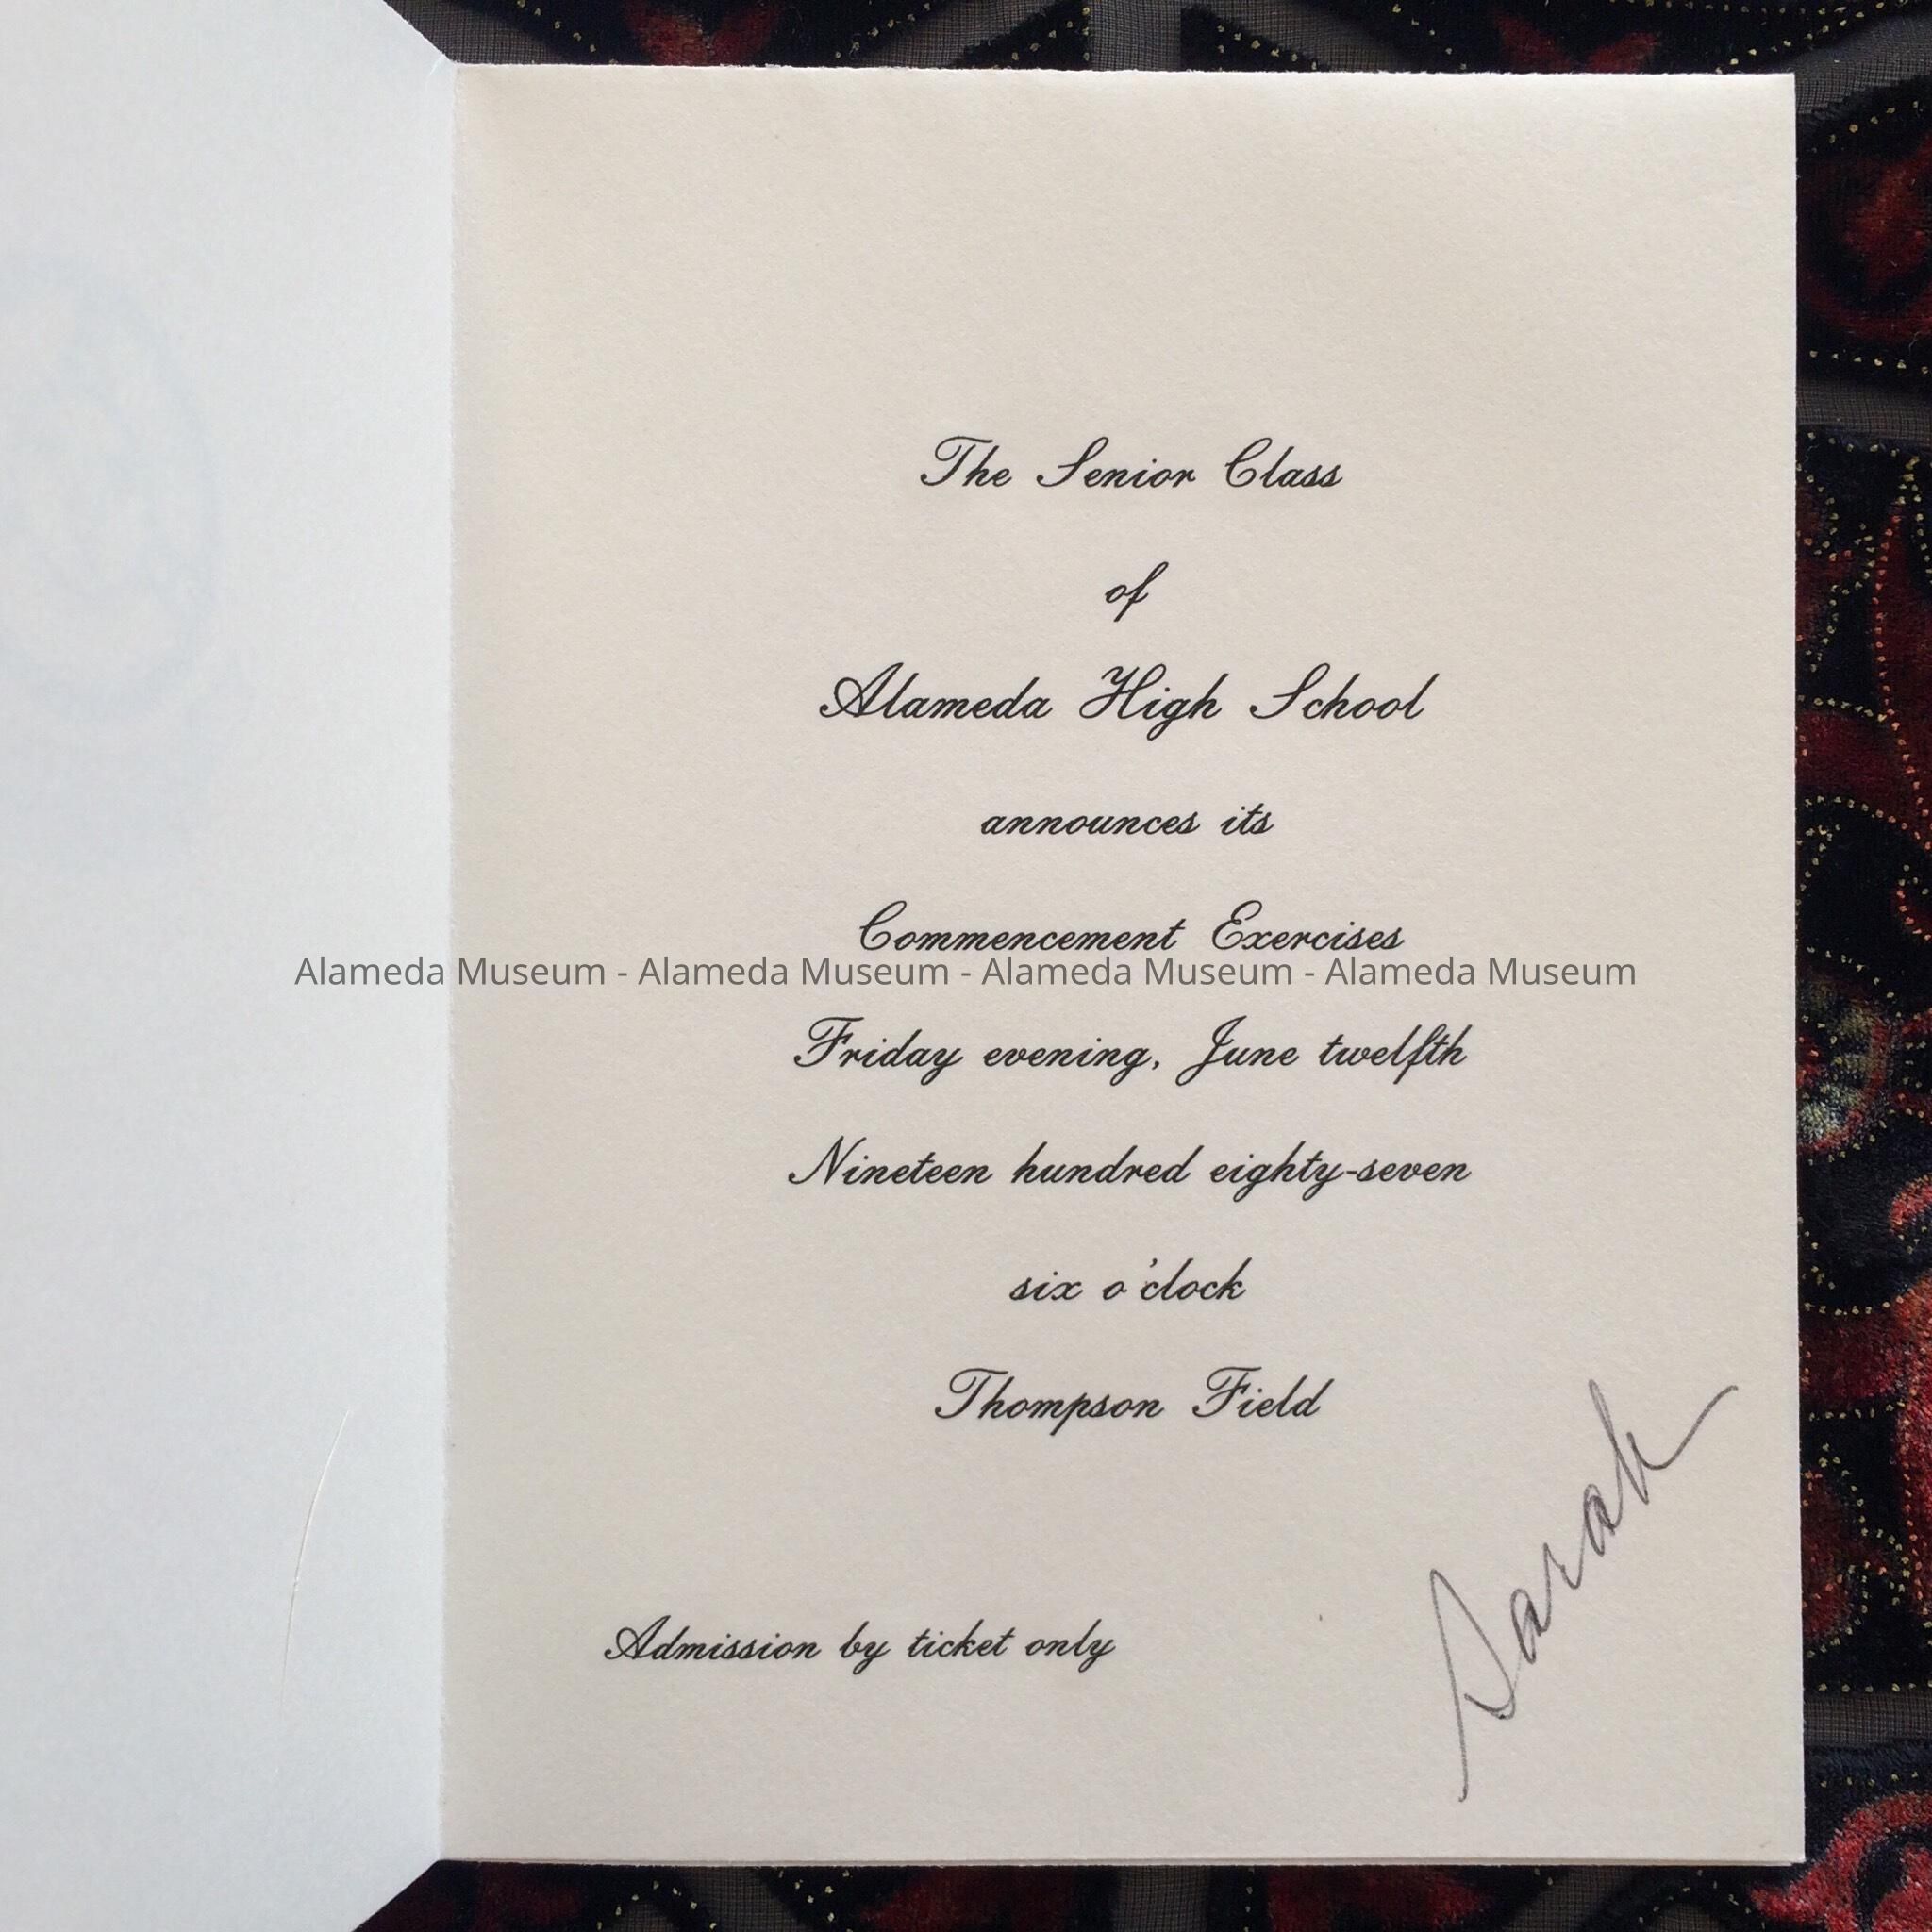 The Senior Class
of
Alameda High School
announces its
Commencement Exercises
Alameda Museum - Alameda Museum - Alameda Museum - Alameda Museum
Friday evening, June twelfth
Nineteen hundred eighty-seven
six o'clock
Thompson Field
Sarah
Admission by ticket only